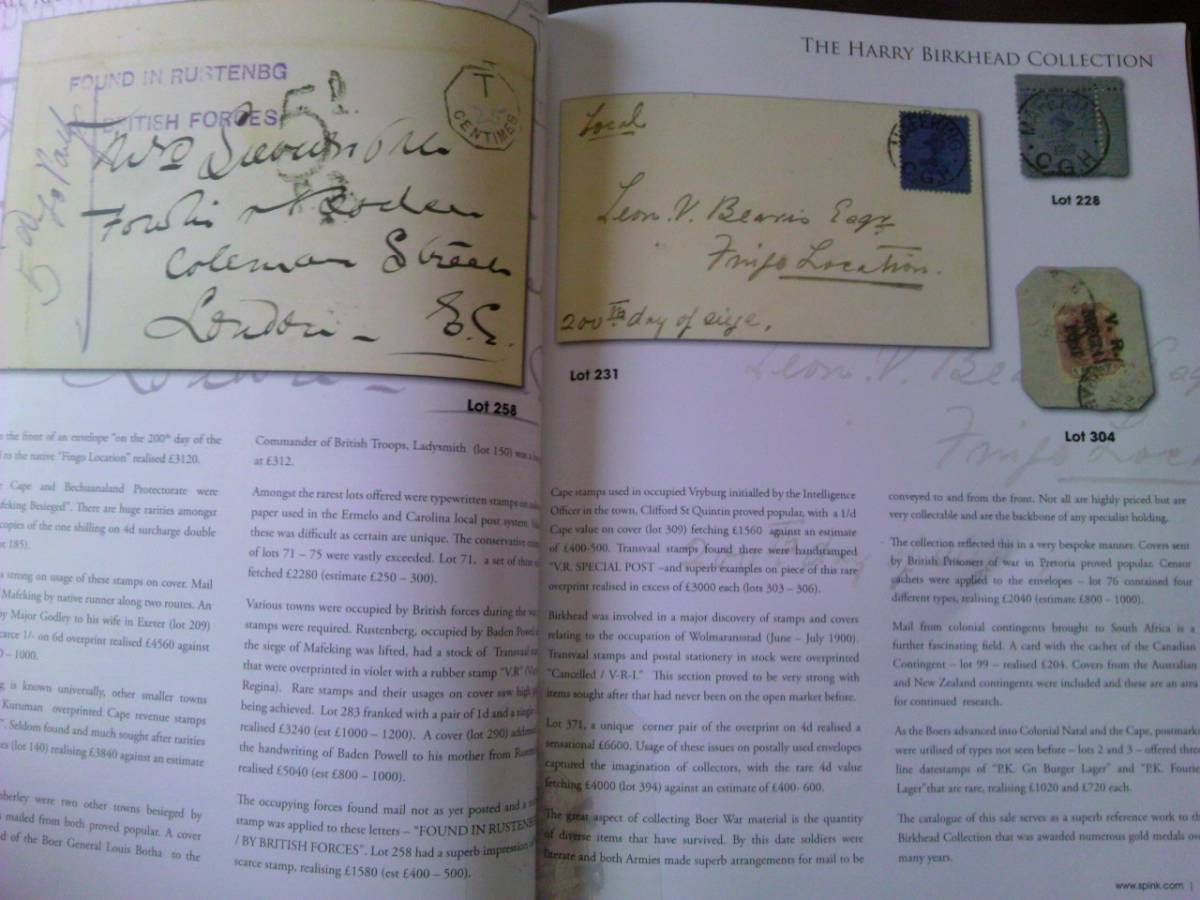 FOUND IN RUSTENBG
BRITISH FORCES
T
CENTIMES
5d
Coleman Street
London - E.C.
Lot 258
n the front of an envelope "on the 200th day of the
d to the native "Fingo Location" realised £3120.
Cape and Bechuanaland Protectorate were
feking Besieged". There are huge rarities amongst
copies of the one shilling on 4d surcharge double
t 185).
a strong on usage of these stamps on cover. Mail
Mafeking by native runner along two routes. An
by Major Godley to his wife in Exeter (lot 209)
carce 1/- on 6d overprint realised £4560 against
0 – 1000.
g, is known universally, other smaller towns
Kuruman overprinted Cape revenue stamps
". Seldom found and much sought after rarities
es (lot 140) realising £3840 against an estimate
mberley were two other towns besieged by
s mailed from both proved popular. A cover
d of the Boer General Louis Botha to the
Commander of British Troops, Ladysmith (lot 150) was a
at £312.
Amongst the rarest lots offered were typewritten stamps on
paper used in the Ermelo and Carolina local post system.
these was difficult as certain are unique. The conservative
of lots 71 – 75 were vastly exceeded. Lot 71, a set of three
fetched £2280 (estimate £250 – 300).
Various towns were occupied by British forces during the war
stamps were required. Rustenberg, occupied by Baden Powell
the siege of Mafeking was lifted, had a stock of Transvaal
that were overprinted in violet with a rubber stamp "V.R"
Regina). Rare stamps and their usages on cover saw high
being achieved. Lot 283 franked with a pair of 1d and a single
realised £3240 (est £1000 – 1200). A cover (lot 290)
the handwriting of Baden Powell to his mother from
realised £5040 (est £800 – 1000).
The occupying forces found mail not as yet posted and a
stamp was applied to these letters – "FOUND IN RUSTENB
/ BY BRITISH FORCES". Lot 258 had a superb impression
scarce stamp, realising £1580 (est £400 – 500).
THE HARRY BIRKHEAD COLLECTION
Local
MAFEKING
C.G.H
Leon. V. Bearis Esqr
Fingo Location.
200th day of siege.
Lot 231
MAFEKING
C.G.H
Lot 228
V. R.
SPECIAL
POST
Lot 304
Cape stamps used in occupied Vryburg initialled by the Intelligence
Officer in the town, Clifford St Quintin proved popular, with a 1/d
Cape value on cover (lot 309) fetching £1560 against an estimate
of £400-500. Transvaal stamps found there were handstamped
"V.R. SPECIAL POST –and superb examples on piece of this rare
overprint realised in excess of £3000 each (lots 303 – 306).
Birkhead was involved in a major discovery of stamps and covers
relating to the occupation of Wolmaransstad (June – July 1900).
Transvaal stamps and postal stationery in stock were overprinted
"Cancelled / V-R-I." This section proved to be very strong with
items sought after that had never been on the open market before.
Lot 371, a unique corner pair of the overprint on 4d realised a
sensational £6600. Usage of these issues on postally used envelopes
captured the imagination of collectors, with the rare 4d value
fetching £4000 (lot 394) against an estimate of £400- 600.
The great aspect of collecting Boer War material is the quantity
of diverse items that have survived. By this date soldiers were
literate and both Armies made superb arrangements for mail to be
conveyed to and from the front. Not all are highly priced but are
very collectable and are the backbone of any specialist holding.
The collection reflected this in a very bespoke manner. Covers sent
by British Prisoners of war in Pretoria proved popular. Censor
cachets were applied to the envelopes – lot 76 contained four
different types, realising £2040 (estimate £800 – 1000).
Mail from colonial contingents brought to South Africa is a
further fascinating field. A card with the cachet of the Canadian
Contingent – lot 99 – realised £204. Covers from the Australian
and New Zealand contingents were included and these are an area
for continued research.
As the Boers advanced into Colonial Natal and the Cape, postmark
were utilised of types not seen before – lots 2 and 3 – offered three
line datestamps of "P.K. Gn Burger Lager" and "P.K. Fourie
Lager"that are rare, realising £1020 and £720 each.
The catalogue of this sale serves as a superb reference work to th
Birkhead Collection that was awarded numerous gold medals ov
many years.
www.spink.com